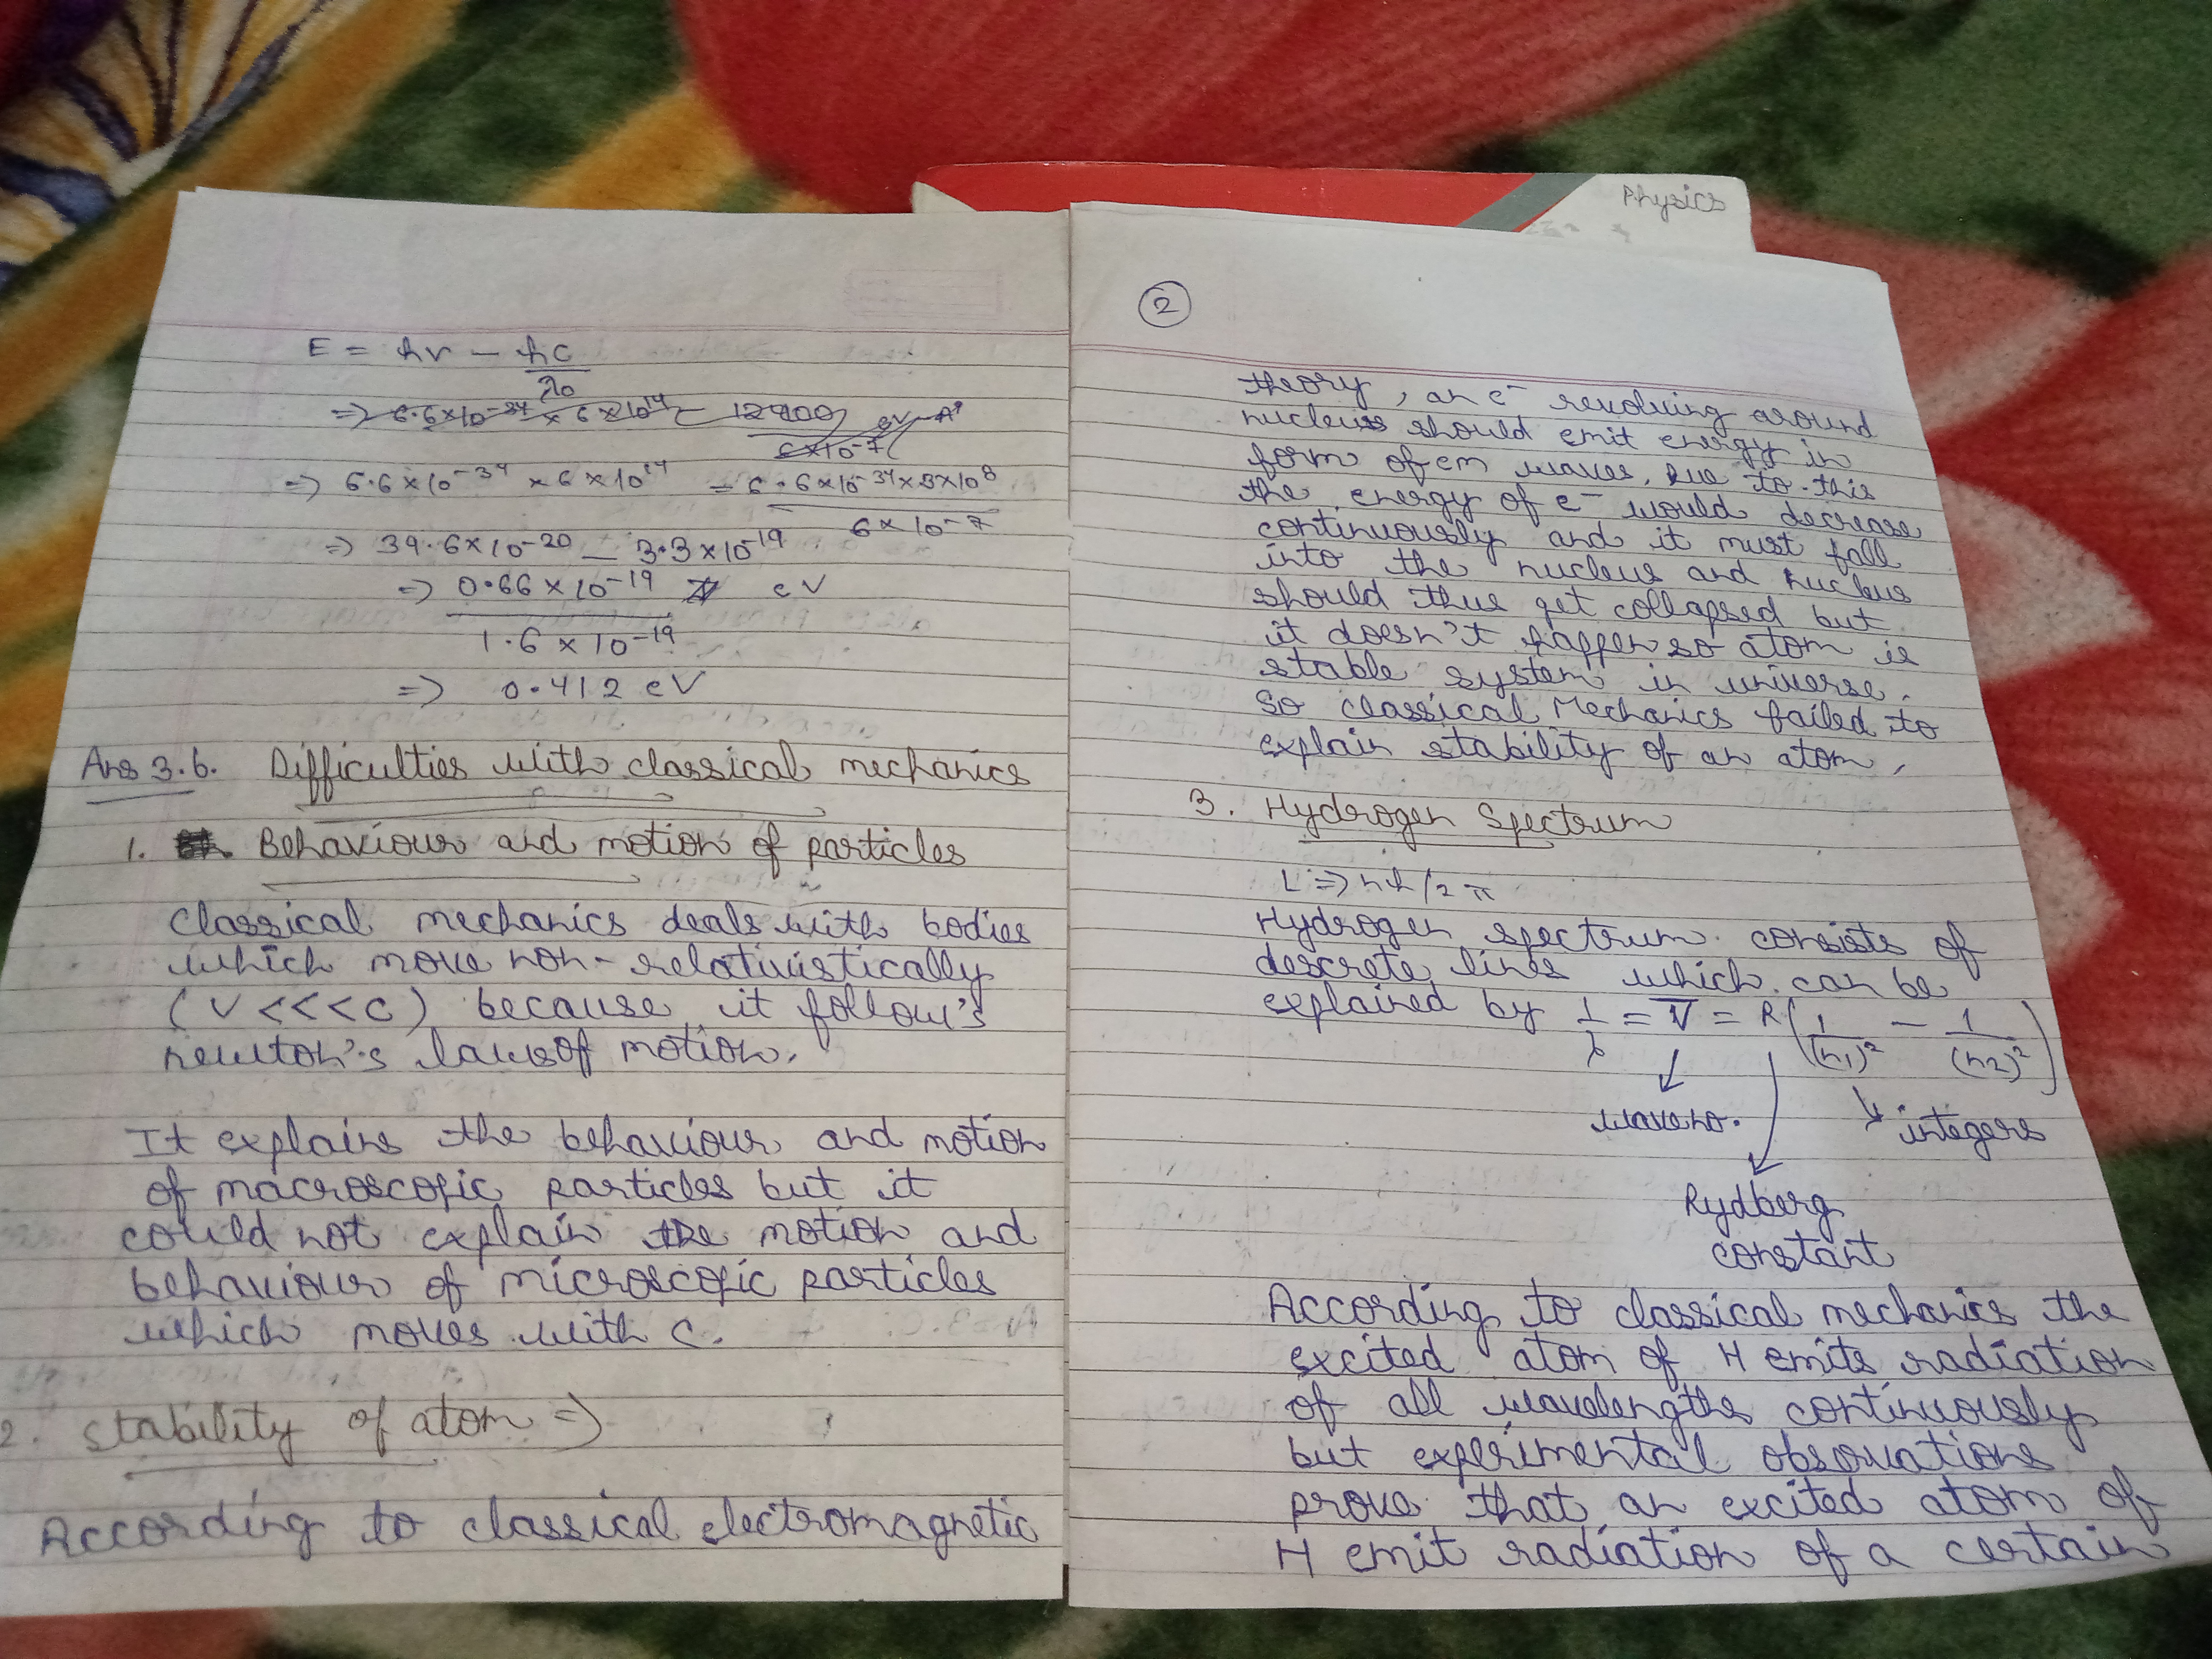 Physics
E = hν - hc
λ0
=> 6.6×10-34 × 6×1014 - 12400 eV-A°
6×10-7
=> 6.6×10-34 ×6×1014 - 6.6×10-34×3×108
6×10-7
=> 39.6×10-20 - 3.3×10-19
=> 0.66×10-19 eV
1.6×10-19
=> 0.412 eV
Ans 3.b. Difficulties with classical mechanics
1. Behaviour and motion of particles
Classical mechanics deals with bodies
which move non-relativistically
(V<<<C) because it follow's
newton's laws of motion.
It explains the behaviour and motion
of macroscopic particles but it
could not explain the motion and
behaviour of microscopic particles
which moves with c.
2. Stability of atom =>
According to classical electromagnetic
2
theory, an e- revolving around
nucleus should emit energy in
form of em waves, Due to this
the energy of e- would decrease
continuously and it must fall
into the nucleus and nucleus
should thus get collapsed but
it doesn't happen so atom is
stable system in universe.
So classical Mechanics failed to
explain stability of an atom.
3. Hydrogen Spectrum
L => nh/2π
Hydrogen spectrum consists of
descrete lines which can be
explained by 1/λ = ν̅ = R(1/(n1)2 - 1/(n2)2)
wave no.
integers
Rydberg
constant
According to classical mechanics the
excited atom of H emits radiation
of all wavelengths continuously
but experimental observations
prove that an excited atom of
H emit radiation of a certain